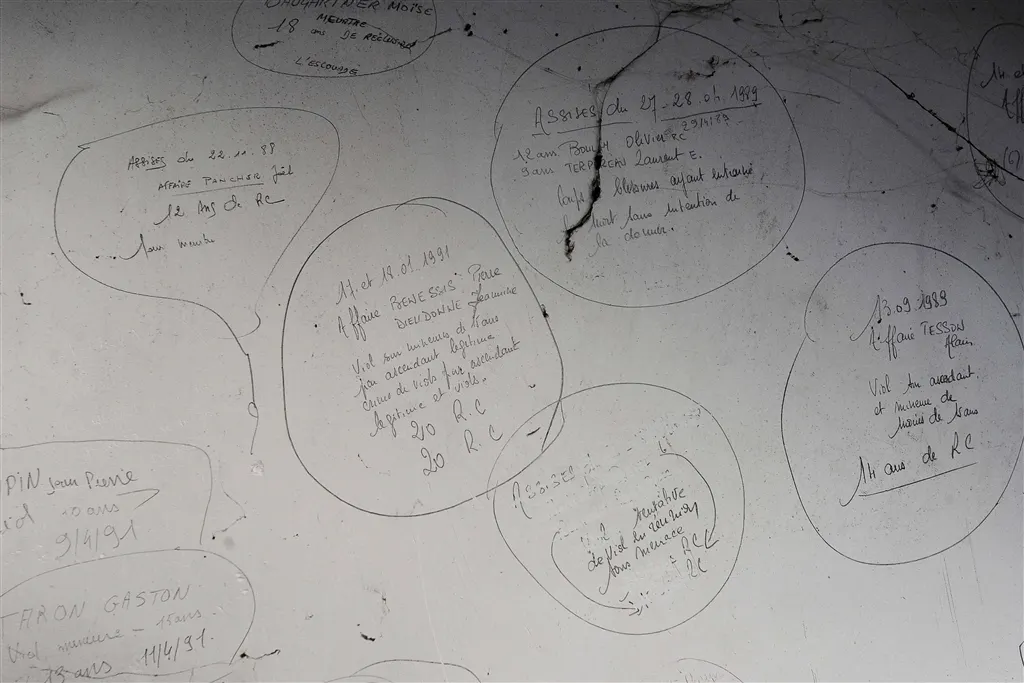 BAUGARTNER MOÏSE
MEURTRE
18 ans DE RÉCLUSION
L'ESCOUBLE
ASSISES du 27-28.04.1989
29/4/89
12 ans Olivier RC
9 ans Laurent E.
Coups blessures ayant entrainé
la mort sans intention de
la donner.
ASSISES du 22.11.88
AFFAIRE PANCHER Joël
12 Ans de RC
17 et 18.01.1991
Affaire BENESSIS Pierre
DIEUDONNE Jeannine
Viol sur mineure de 15 ans
par ascendant legitime
crime de viols par ascendant
legitime et viols.
20 R.C
20 R.C
13.09.1989
Affaire TESSON
Alain
Viol sur ascendant
et mineure de
moins de 15 ans
14 ans de RC
ASSISES
tentative
de viol en réunion
sous menace
RC
RC
PIN Jean Pierre
ans
9/4/91
TARON GASTON
Viol mineure - 15 ans.
13 ans 11/4/91.
14 et
Aff